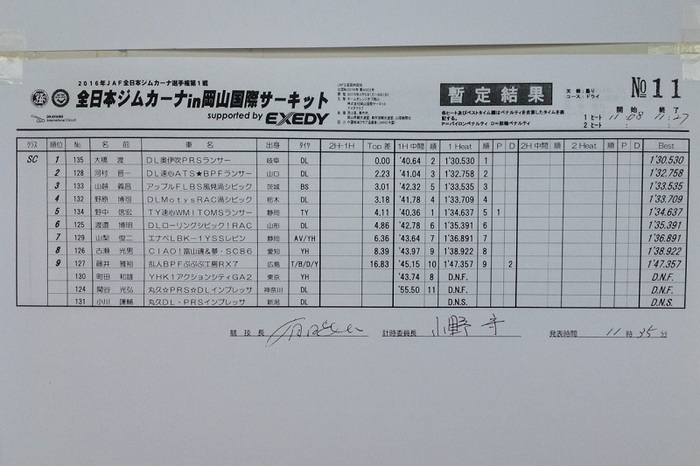 2016年JAF全日本ジムカーナ選手権第1戦
全日本ジムカーナin岡山国際サーキット
supported by EXEDY
暫定結果
天候：曇り
コース：ドライ
№11
開始 終了
1ヒート 11:08 11:27
2ヒート
P＝パイロンペナルティ D＝脱輪ペナルティ
クラス 順位 № 名前 車名 出身 タイヤ 2H-1H Top差 1H中間 順 1 Heat 順 P D 2H中間 順 2 Heat 順 P D Best
SC 1 135 大橋 渡 DL奥伊吹PRSランサー 岐阜 DL 0.00 '40.64 2 1'30.530 1 1'30.530
2 128 河村 晋一 DL速心ATS★BPFランサー 山口 DL 2.23 '41.04 3 1'32.758 2 1'32.758
3 133 山越 義昌 アップルFLBS風見潟シビック 茨城 BS 3.01 '42.32 5 1'33.535 3 1'33.535
4 132 野原 博司 DLMotysRAC潟シビック 栃木 DL 3.18 '41.78 4 1'33.709 4 1'33.709
5 134 野中 信宏 TY速心WMITOMSランサー 静岡 TY 4.11 '40.36 1 1'34.637 5 1 1'34.637
6 125 渡邉 博明 DLローリングシビック!RAC 山形 DL 4.86 '42.78 6 1'35.391 6 1'35.391
7 129 山梨 俊二 エナペLBK-1YSSレビン 静岡 AV/YH 6.36 '43.64 7 1'36.891 7 1'36.891
8 126 古瀬 光男 CIAO!富山魂&夢・SC86 愛知 YH 8.39 '43.97 9 1'38.922 8 1'38.922
9 127 藤井 雅裕 乱人BPFぶぶぶ工房RX7 広島 T/B/D/Y 16.83 '45.15 10 1'47.357 9 2 1'47.357
130 町田 和雄 YHK1アクションシティGA2 東京 YH '43.74 8 D.N.F. D.N.F.
124 関谷 光弘 丸久☆PRS☆DLインプレッサ 神奈川 DL '55.50 11 D.N.F. D.N.F.
131 小川 謙輔 丸久DL・PRSインプレッサ 新潟 DL D.N.S. D.N.S.
競技長 計時委員長 小野 発表時間 11 時 35 分